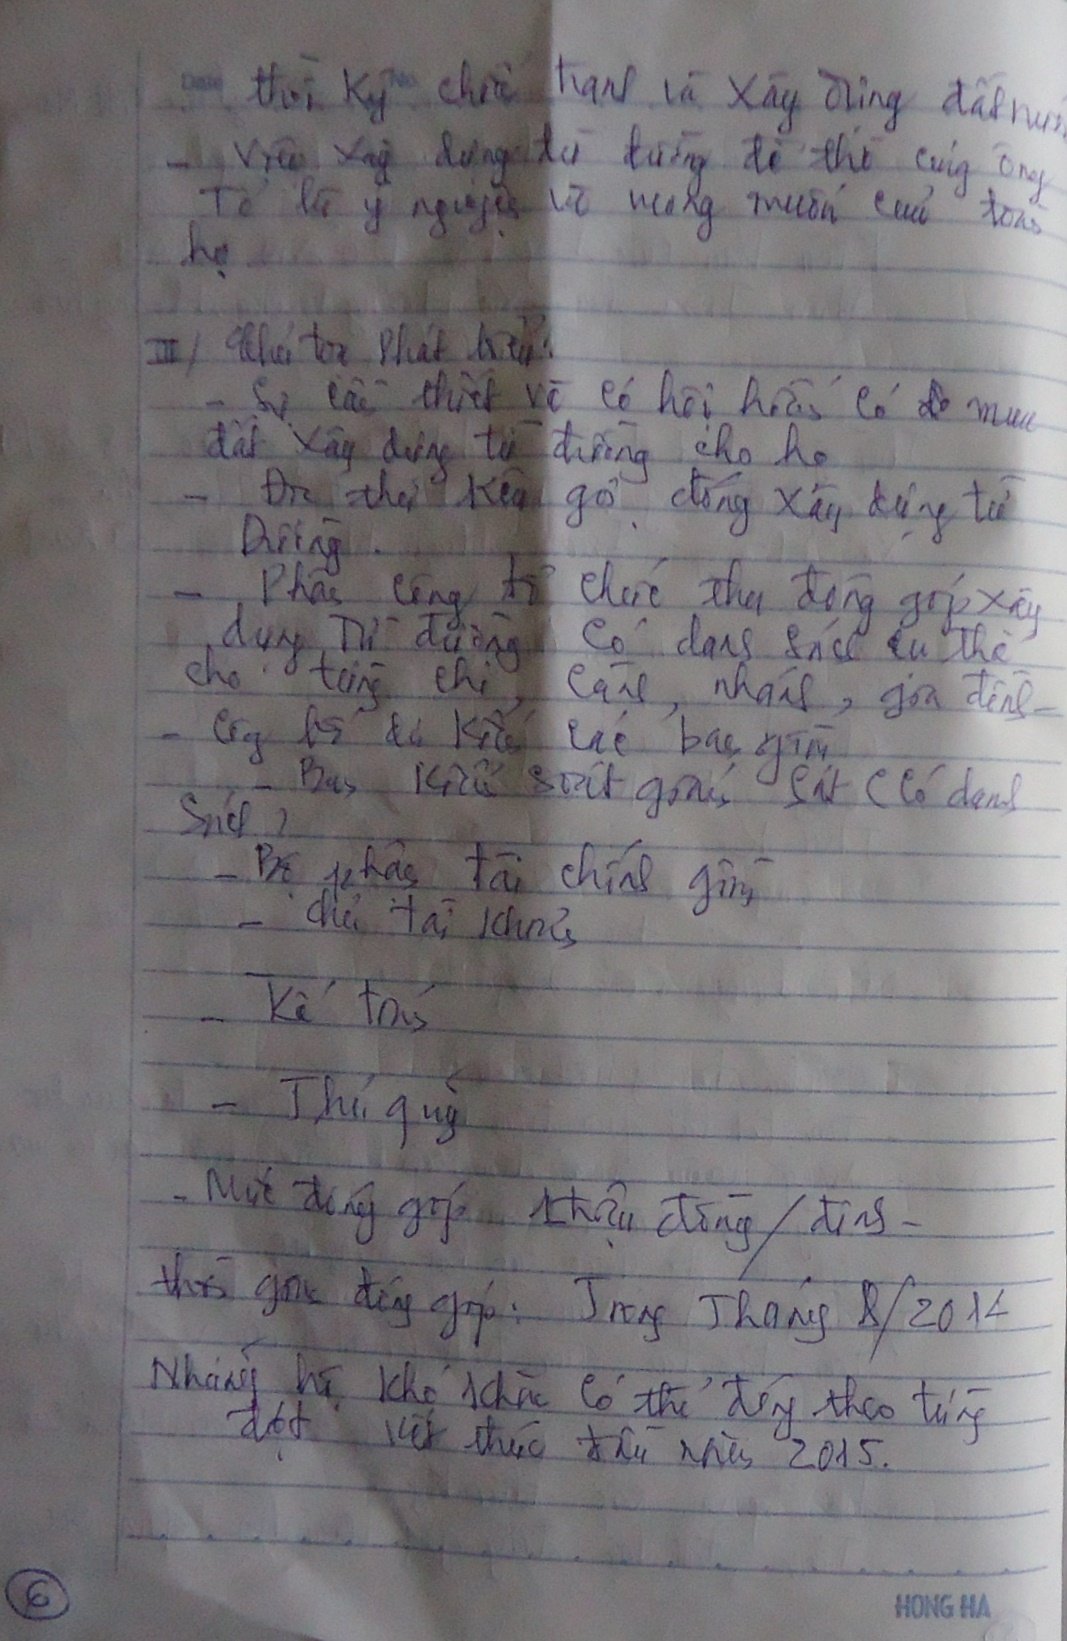 thời kỳ chiến tranh và xây dựng đất nước
- Việc xây dựng từ đường để thờ cúng ông
Tổ là ý nguyện và mong muốn của toàn
họ
III/ Chủ tọa phát biểu:
- Sự cần thiết và có hội hoán có để mua
đất xây dựng từ đường cho họ
- Ra thư kêu gọi đóng xây dựng từ
Đường.
- Phân công tổ chức thu đóng góp xây
dựng Từ đường có danh sách cụ thể
cho từng chi, cành, nhánh, gia đình -
- Công bố dự kiến các ban gồm
- Ban kiểm soát giám sát (có danh
sách)
- Bộ phận tài chính gồm
- Chủ tài khoản
- Kế toán
- Thủ quỹ
- Mức đóng góp triệu đồng/đinh -
thời gian đóng góp: Trong Tháng 8/2014
Những hộ khó khăn có thể đóng theo từng
đợt kết thúc đầu năm 2015.
6
HONG HA